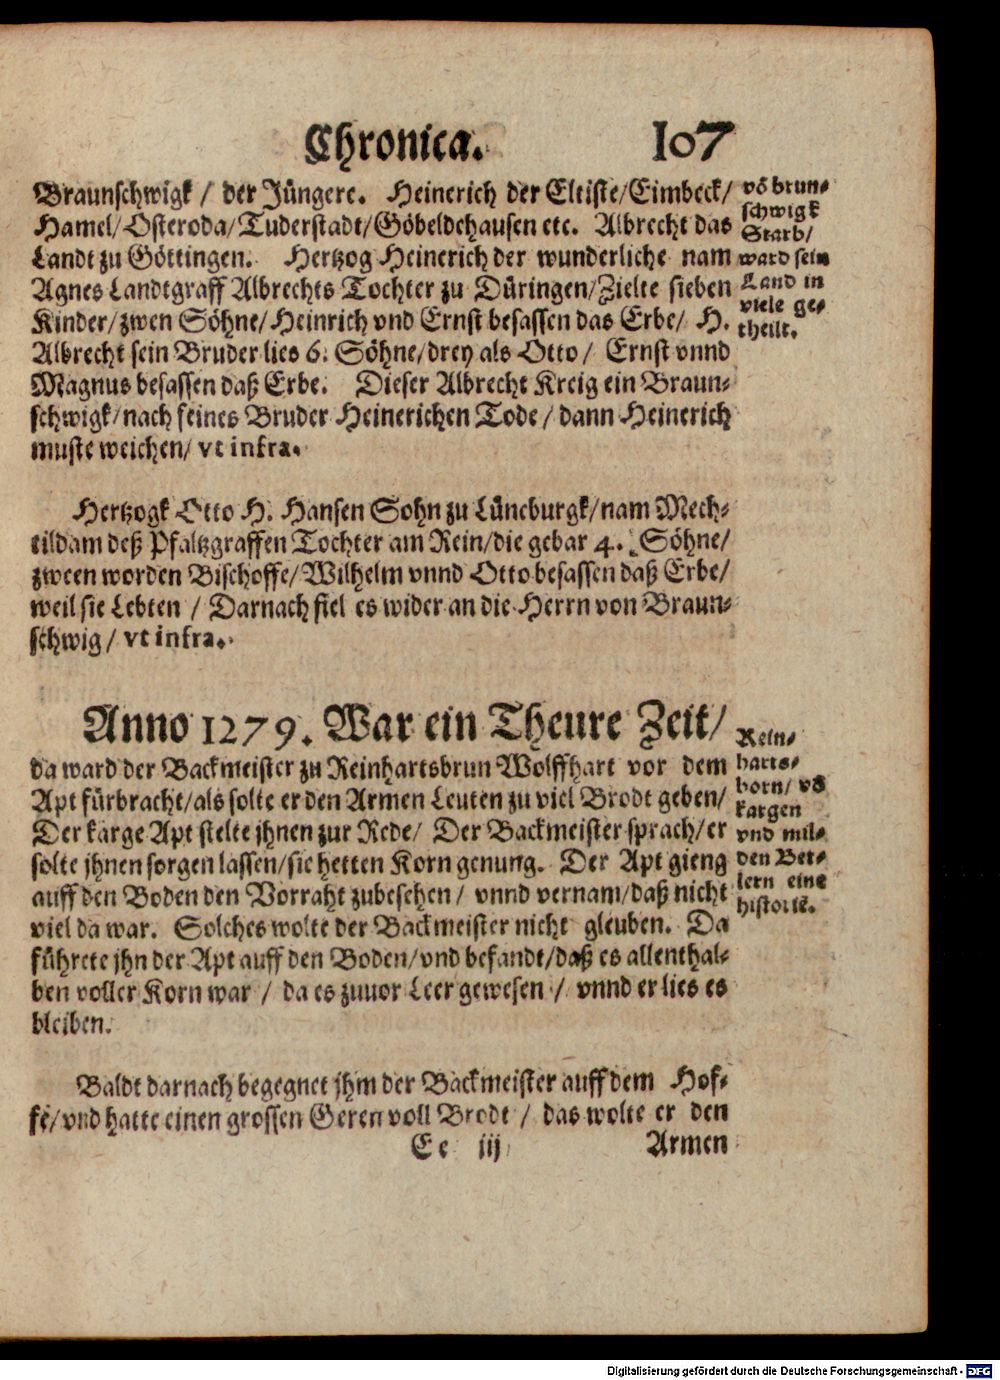 Chronica. 107
Braunschwigk / der Jüngere. Heinerich der Eltiste/Eimbeck/
Hamel/Osteroda/Tuderstadt/Göbeldehausen etc. Albrecht das
Landt zu Göttingen. Hertzog Heinerich der wunderliche nam
Agnes Landtgraff Albrechts Tochter zu Düringen/Zielte sieben
Kinder/zwen Söhne/Heinrich vnd Ernst besassen das Erbe/ H.
Albrecht sein Bruder lies 6. Söhne/drey als Otto/ Ernst vnnd
Magnus besassen daß Erbe. Dieser Albrecht Kreig ein Braun-
schwigk/nach seines Bruder Heinerichen Tode/ dann Heinerich
muste weichen/ vt infra.
võ brun-
schwigk
Starb/
ward sein
Land in
viele ge-
theilt.
Hertzogk Otto H. Hansen Sohn zu Lüneburgk/nam Mech-
tildam deß Pfaltzgraffen Tochter am Rein/die gebar 4. Söhne/
zween worden Bischoffe/Wilhelm vnnd Otto besassen daß Erbe/
weil sie Lebten / Darnach fiel es wider an die Herrn von Braun-
schwig/ vt infra.
Anno 1279. War ein Theure Zeit/
da ward der Backmeister zu Reinhartsbrun Wolffhart vor dem
Apt fürbracht/als solte er den Armen Leuten zu viel Brodt geben/
Der karge Apt stelte jhnen zur Rede/ Der Backmeister sprach/er
solte jhnen sorgen lassen/sie hetten Korn genung. Der Apt gieng
auff den Boden den Vorraht zubesehen/ vnnd vernam/daß nicht
viel da war. Solches wolte der Backmeister nicht gleuben. Da
führete jhn der Apt auff den Boden/vnd befandt/daß es allenthal-
ben voller Korn war / da es zuuor Leer gewesen / vnnd er lies es
bleiben.
Rein-
harts-
born/ võ
kargen
vnd mil-
den Bet-
lern eine
historie.
Baldt darnach begegnet jhm der Backmeister auff dem Hof-
fe/vnd hatte einen grossen Geren voll Brodt / das wolte er den
Ee iij Armen
Digitalisierung gefördert durch die Deutsche Forschungsgemeinschaft - DFG